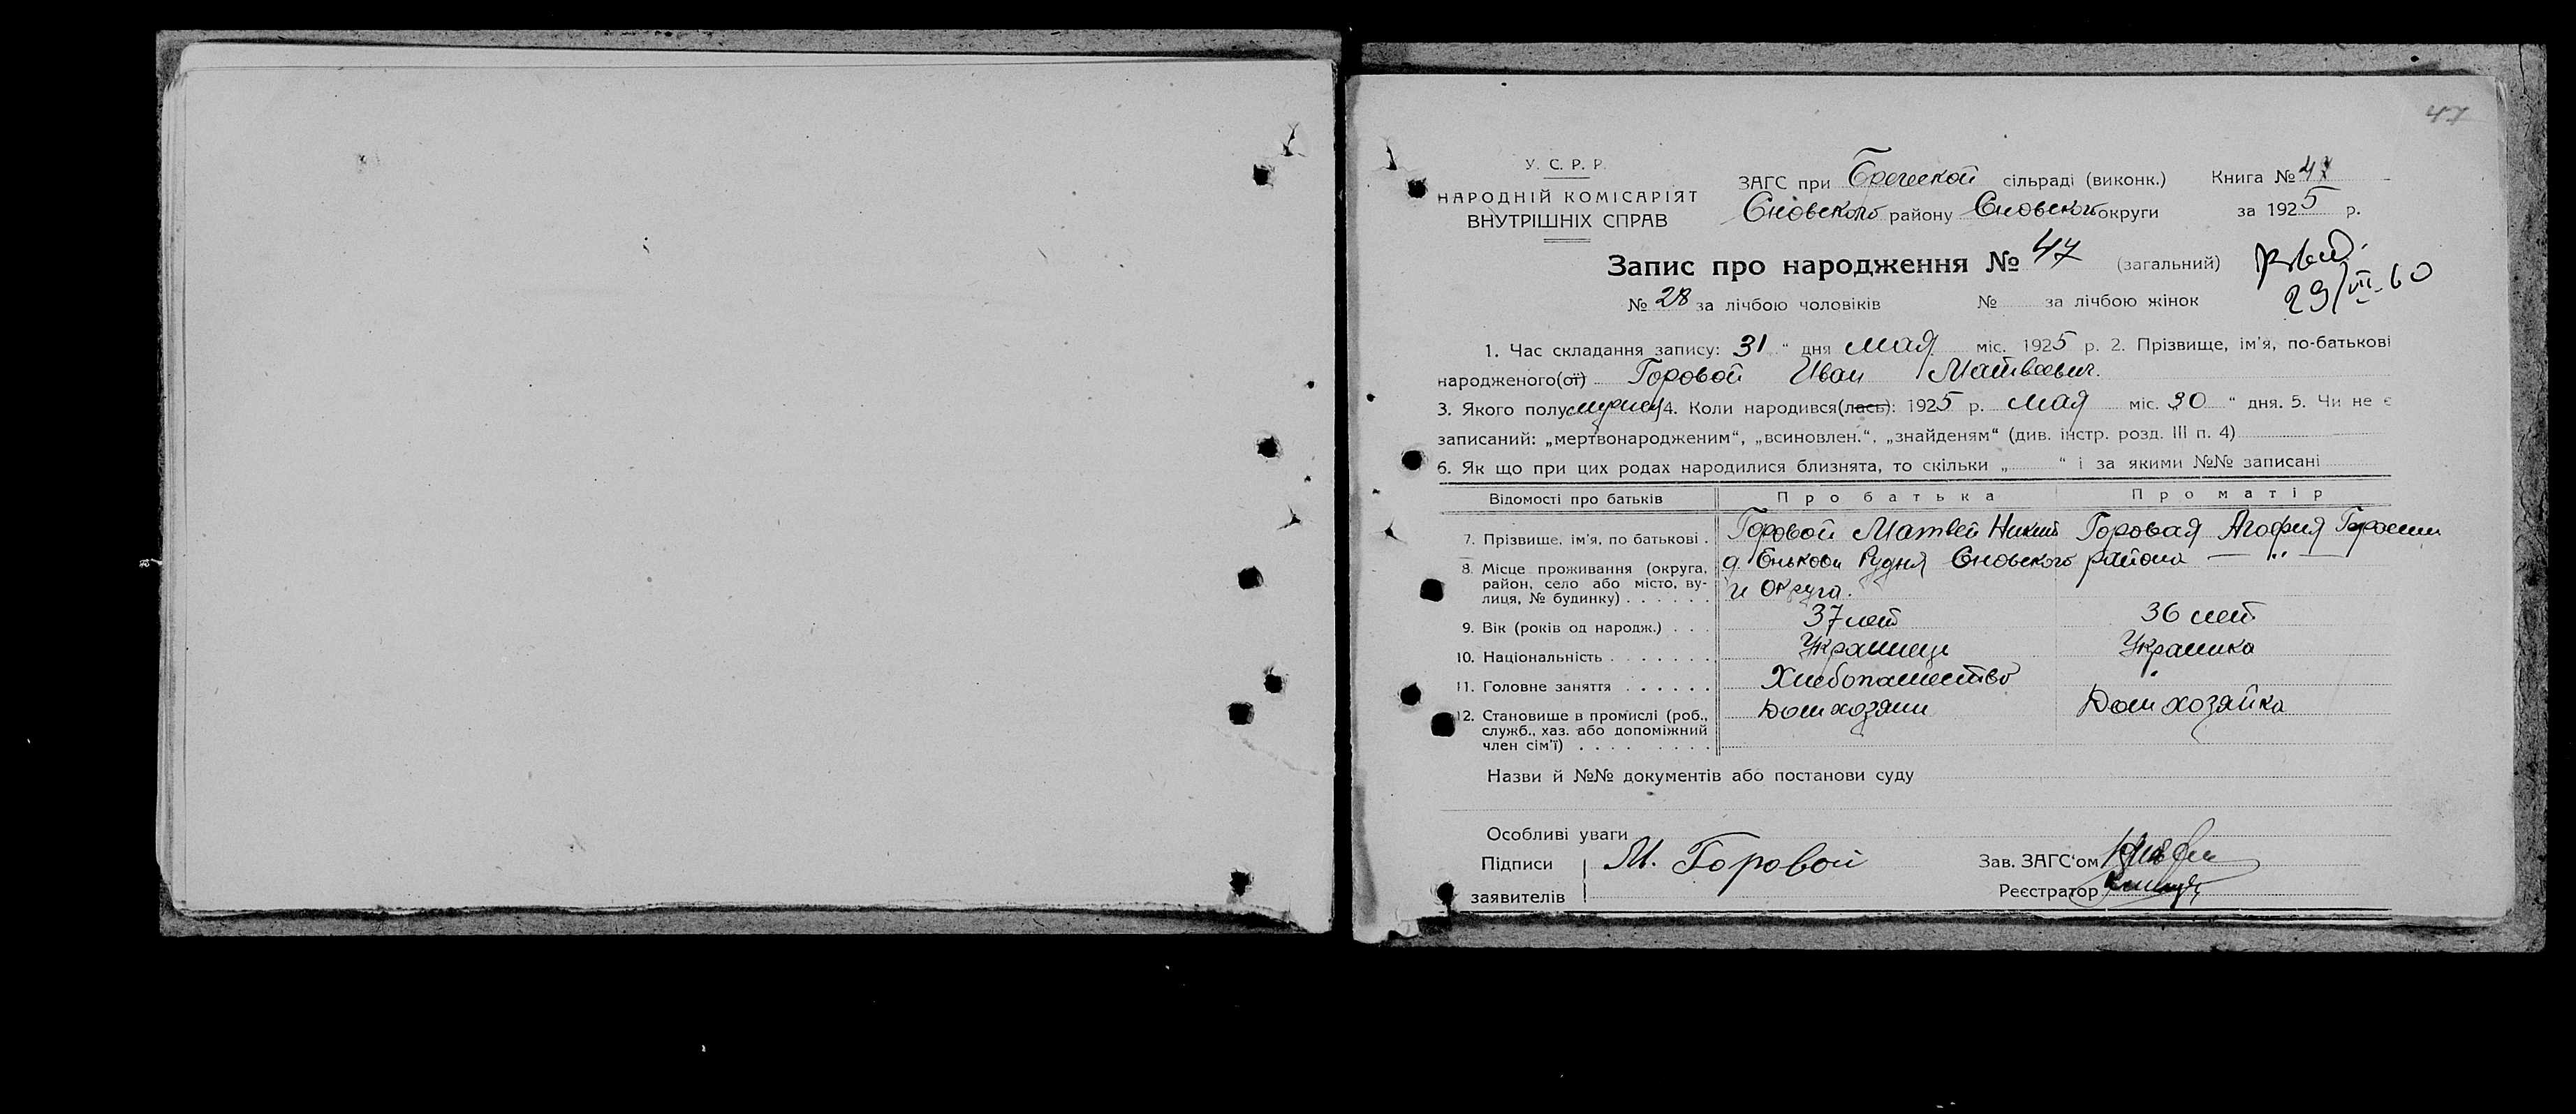 47
У. С. Р. Р.
НАРОДНІЙ КОМІСАРІЯТ
ВНУТРІШНІХ СПРАВ
ЗАГС при сільраді (виконк.) Книга № 47
Сновского району Сновского округи за 1925 р.
Запис про народження № 47 (загальний)
29/VII-60
№ 28 за лічбою чоловіків № за лічбою жінок
1. Час складання запису: 31 " дня мая міс. 1925 р. 2. Прізвище, ім'я, по-батькові
народженого(ої) Горовой Иван Матвеевич.
3. Якого полу мужск 4. Коли народився(лась): 1925 р. мая міс. 30 " дня. 5. Чи не є
записаний: „мертвонародженим“, „всиновлен.“, „знайденям“ (див. інстр. розд. III п. 4)
6. Як що при цих родах народилися близнята, то скільки „ “ і за якими №№ записані
Відомості про батьків Про батька Про матір
7. Прізвище, ім'я, по батькові . Горовой Матвей Никит Горовая Агофия Герасим
8. Місце проживання (округа, район, село або місто, вулиця, № будинку) . . . . . . д. Рудня Сновского района — " —
и округа.
9. Вік (років од народж.) . . . 37 лет 36 лет
10. Національність . . . . . . . Украинец Украинка
11. Головне заняття . . . . . . Хлебопашество
12. Становище в промислі (роб., служб., хаз. або допоміжний член сім'ї) . . . . . . . . Дом хозяин Дом хозяйка
Назви й №№ документів або постанови суду
Особливі уваги
Підписи
заявителів
М. Горовой
Зав. ЗАГС'ом
Реєстратор